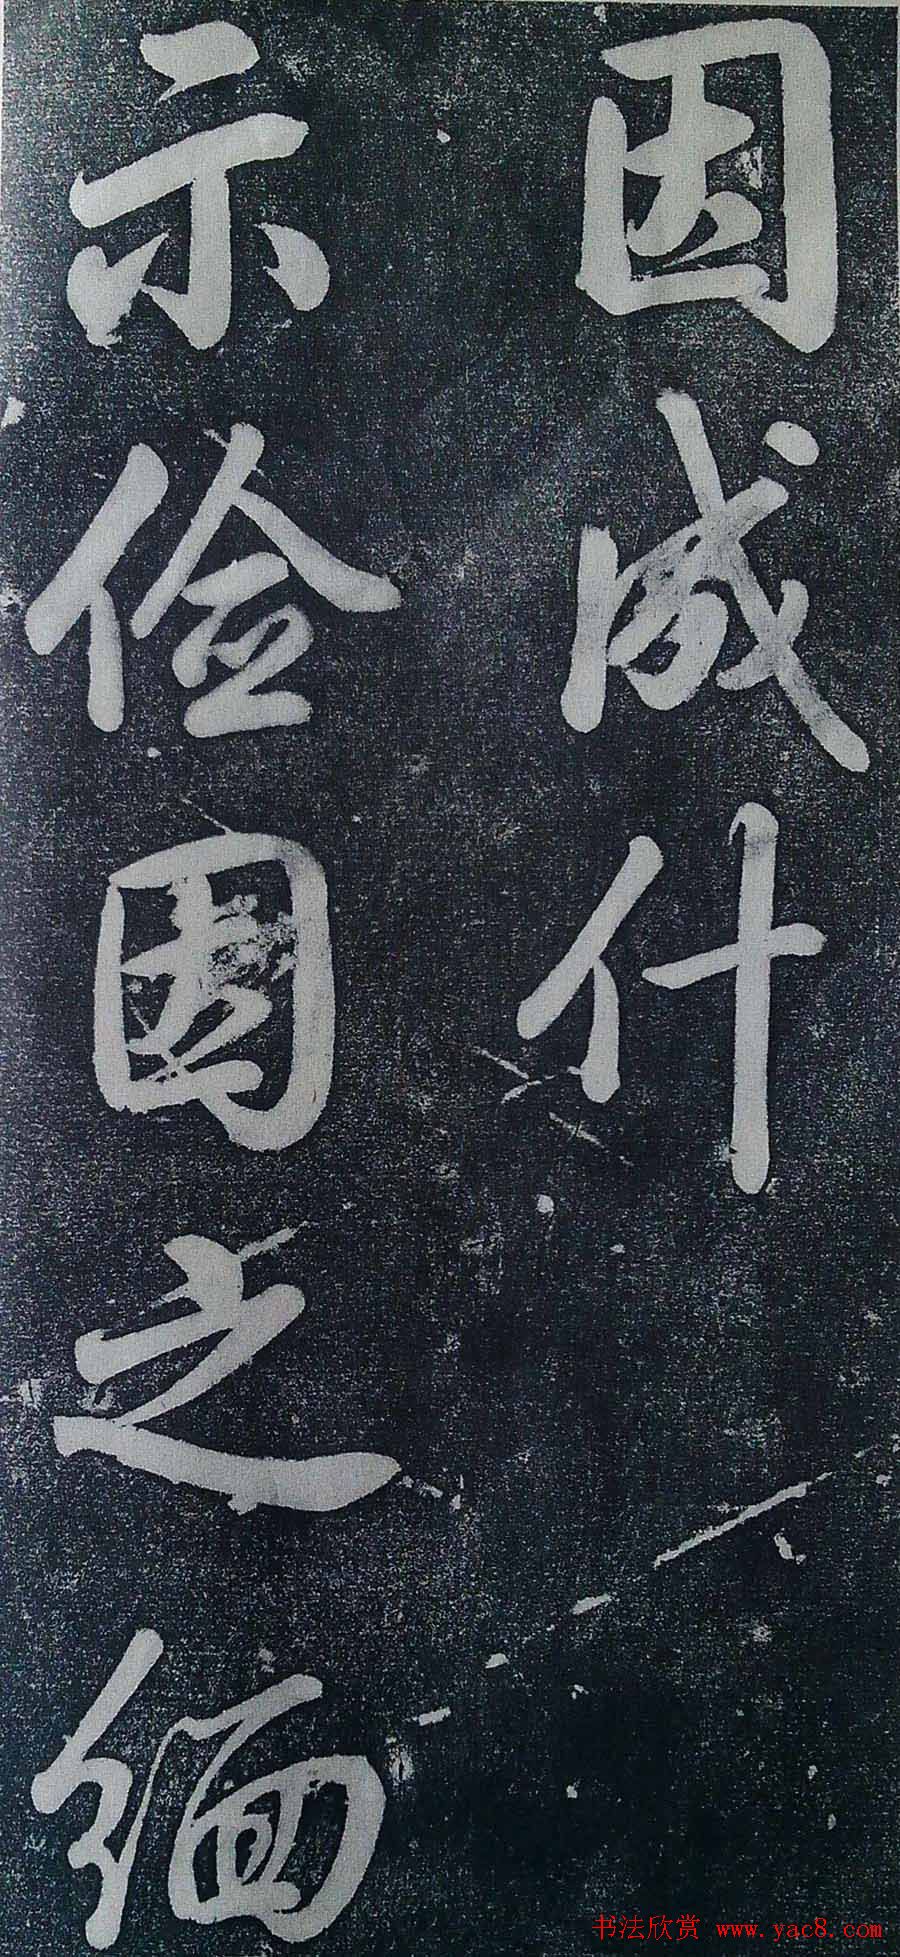 因成什
示儉因之緬
书法欣赏 www.yac8.com